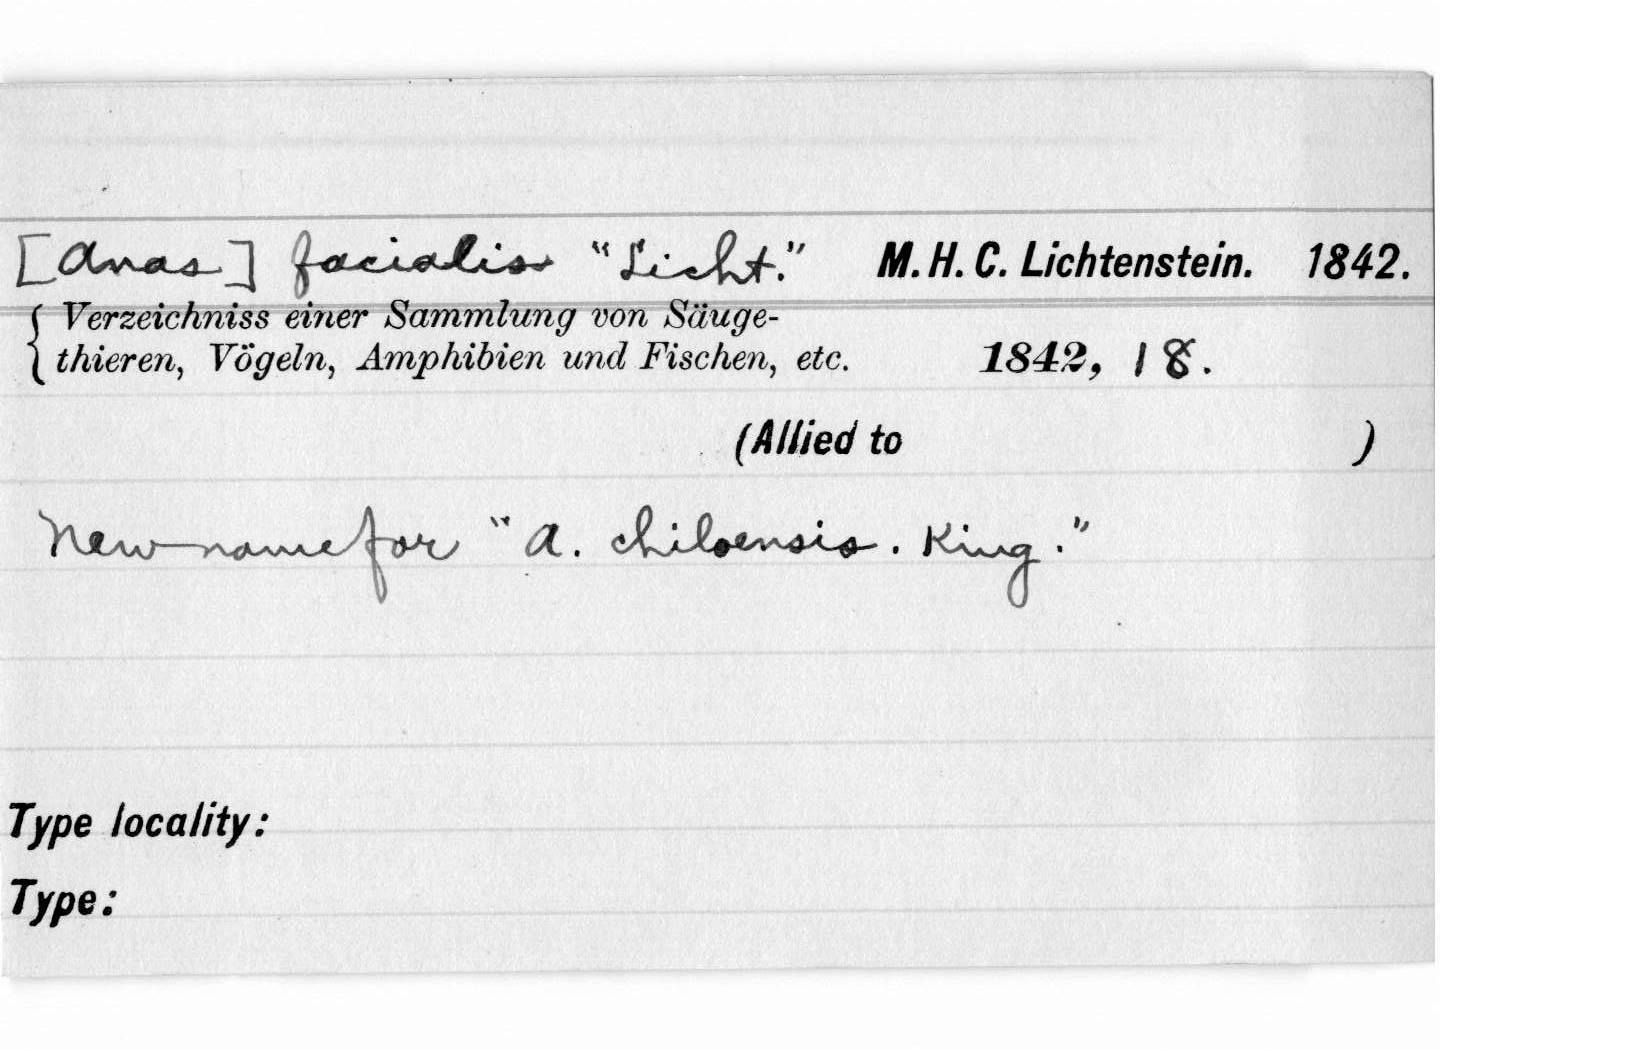 [Anas] facialis "Licht." M. H. C. Lichtenstein. 1842.
{ Verzeichniss einer Sammlung von Säuge-
thieren, Vögeln, Amphibien und Fischen, etc. 1842, 18.
(Allied to )
New name for "A. chiloensis. King."
Type locality:
Type: